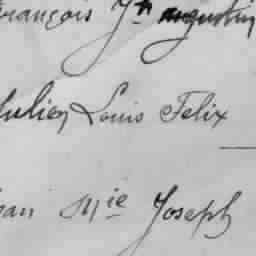 françois Jh augustin
Julien Louis Felix
Jean Mie Joseph